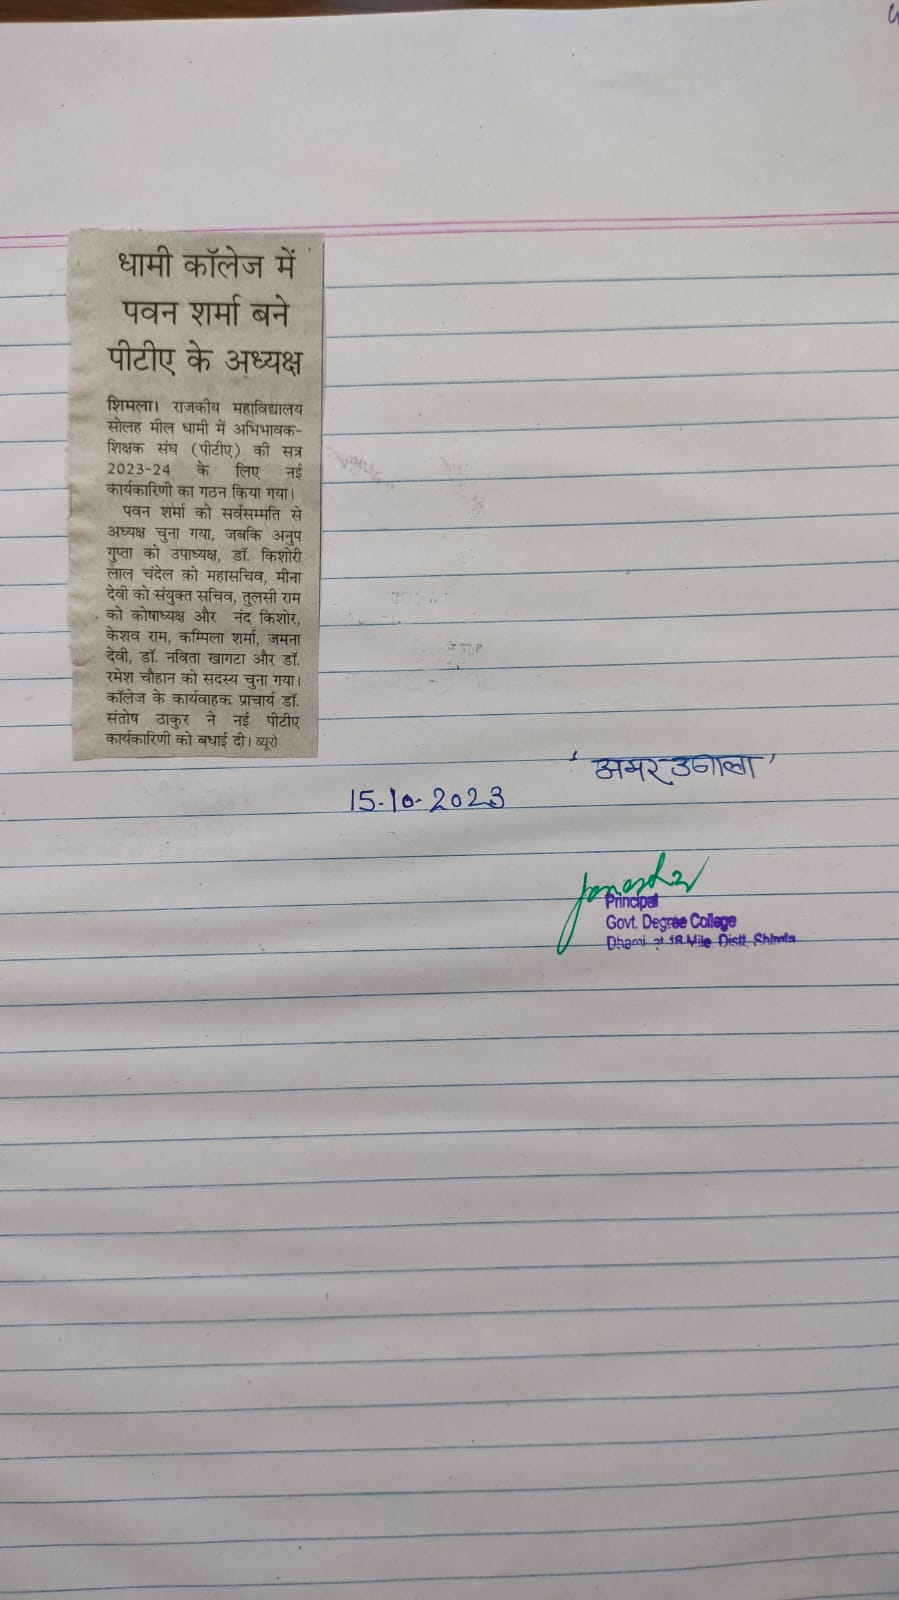 धामी कॉलेज में
पवन शर्मा बने
पीटीए के अध्यक्ष
शिमला। राजकीय महाविद्यालय
सोलह मील धामी में अभिभावक-
शिक्षक संघ (पीटीए) की सत्र
2023-24 के लिए नई
कार्यकारिणी का गठन किया गया।
पवन शर्मा को सर्वसम्मति से
अध्यक्ष चुना गया, जबकि अनुप
गुप्ता को उपाध्यक्ष, डॉ. किशोरी
लाल चंदेल को महासचिव, मीना
देवी को संयुक्त सचिव, तुलसी राम
को कोषाध्यक्ष और नंद किशोर,
केशव राम, कम्पिला शर्मा, जमना
देवी, डॉ. नविता खागटा और डॉ.
रमेश चौहान को सदस्य चुना गया।
कॉलेज के कार्यवाहक प्राचार्य डॉ.
संतोष ठाकुर ने नई पीटीए
कार्यकारिणी को बधाई दी। ब्यूरो
'अमर उजाला'
15-10-2023
Principal
Govt. Degree College
Dhami at 16 Mile Distt. Shimla